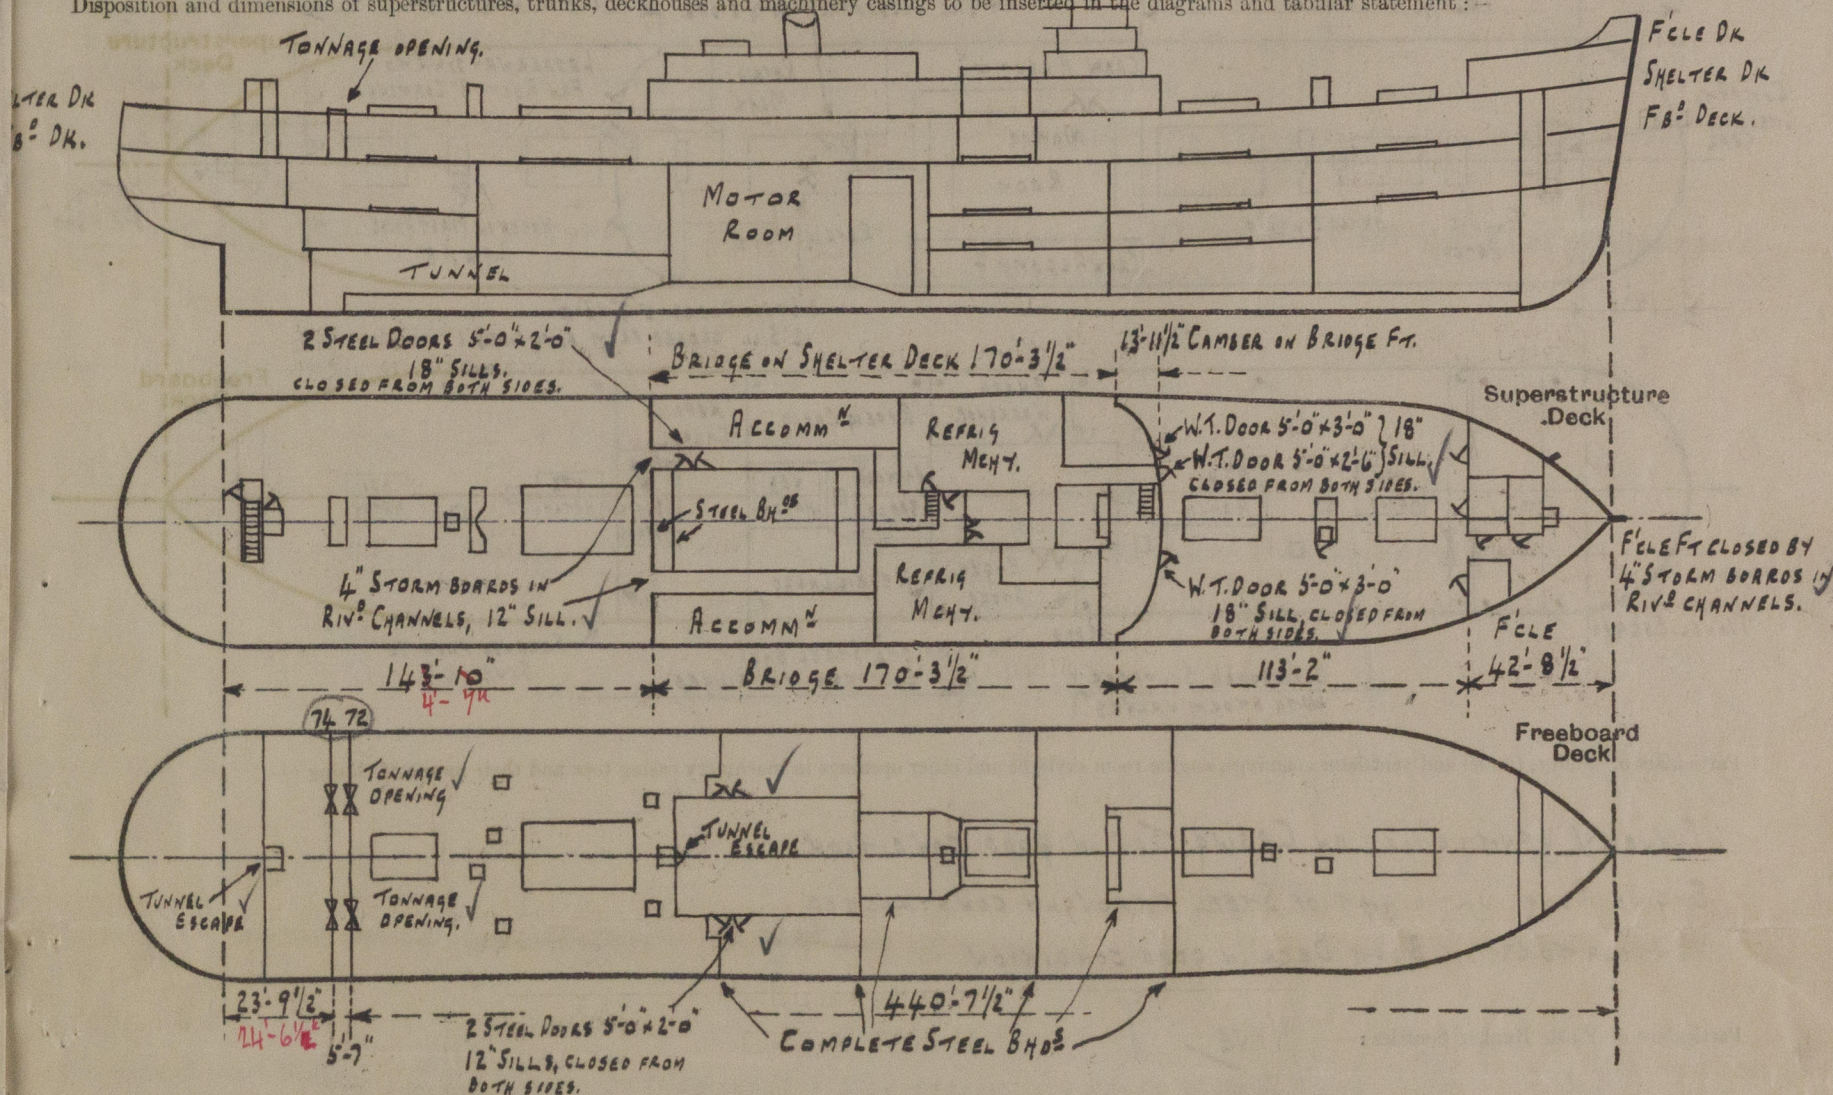 Disposition and dimensions of superstructures, trunks, deckhouses and machinery casings to be inserted in the diagrams and tabular statement :—
TONNAGE OPENING.
F'CLE DK
SHELTER DK
FBD DECK.
LTER DK
BD DK.
MOTOR
ROOM
TUNNEL
2 STEEL DOORS 5'-0" x 2'-0"
18" SILLS.
CLOSED FROM BOTH SIDES.
BRIDGE ON SHELTER DECK 170'-3½"
13'-11½" CAMBER ON BRIDGE FT.
Superstructure
Deck
ACCOMMN
REFRIG
MCHY.
W.T. DOOR 5'-0" x 3'-0" } 18"
W.T. DOOR 5'-0" x 2'-6" } SILL,
CLOSED FROM BOTH SIDES.
STEEL BHDS
4" STORM BOARDS IN
RIVD CHANNELS, 12" SILL.
ACCOMMN
REFRIG
MCHY.
W.T. DOOR 5'-0" x 3'-0"
18" SILL, CLOSED FROM
BOTH SIDES.
F'CLE FT CLOSED BY
4" STORM BOARDS IN
RIVD CHANNELS.
F'CLE
143'-10"
4'-7"
BRIDGE 170'-3½"
113'-2"
42'-8½"
74 72
Freeboard
Deck
TONNAGE
OPENING
TUNNEL
ESCAPE
TUNNEL
ESCAPE
TONNAGE
OPENING.
23'-9½"
24'-6½"
5'-7"
440'-7½"
2 STEEL DOORS 5'-0" x 2'-0"
12" SILLS, CLOSED FROM
BOTH SIDES.
COMPLETE STEEL BHDS